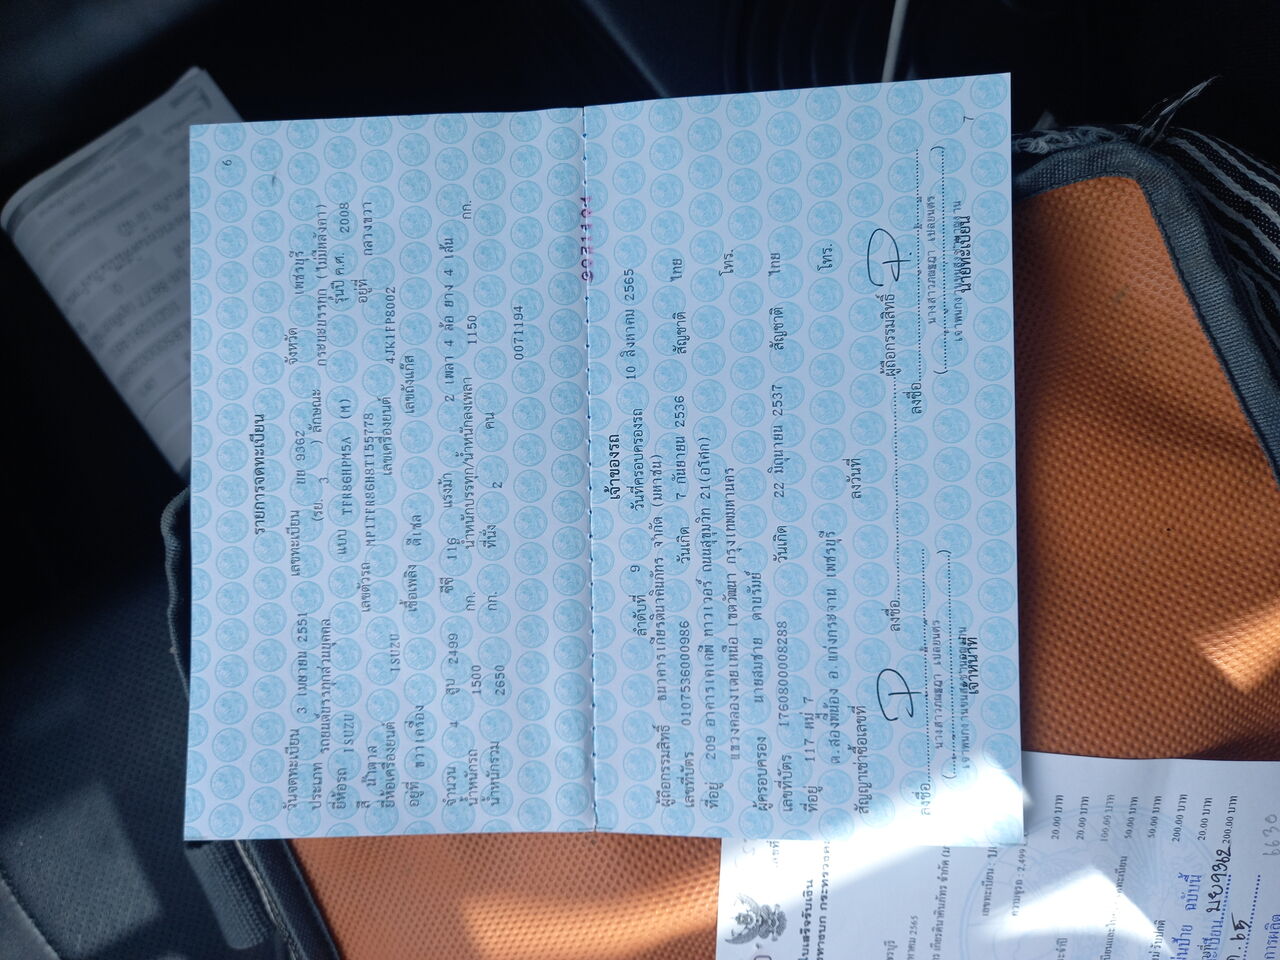 6
รายการจดทะเบียน
วันจดทะเบียน 3 เมษายน 2551 เลขทะเบียน จังหวัด เพชรบุรี
ประเภท รถยนต์บรรทุกส่วนบุคคล (รย. 3 ) ลักษณะ กระบะบรรทุก (ไม่มีหลังคา)
ยี่ห้อรถ ISUZU แบบ TFR86HPM5A (M) รุ่นปี ค.ศ. 2008
สี น้ำตาล เลขตัวรถ MP1TFR86H8T155778 อยู่ที่ กลางขวา
ยี่ห้อเครื่องยนต์ ISUZU เลขเครื่องยนต์ 4JK1FP8002
อยู่ที่ ขวาเครื่อง เชื้อเพลิง ดีเซล เลขถังแก๊ส
จำนวน 4 สูบ 2499 ซีซี 116 แรงม้า 2 เพลา 4 ล้อ ยาง 4 เส้น
น้ำหนักรถ 1500 กก. น้ำหนักบรรทุก/น้ำหนักลงเพลา 1150 กก.
น้ำหนักรวม 2650 กก. ที่นั่ง 2 คน
0071194
เจ้าของรถ
ลำดับที่ 9 วันที่ครอบครองรถ 10 สิงหาคม 2565
ผู้ถือกรรมสิทธิ์ ธนาคารเกียรตินาคินภัทร จำกัด (มหาชน)
เลขที่บัตร 0107536000986 วันเกิด 7 กันยายน 2536 สัญชาติ ไทย
ที่อยู่ 209 อาคารเคเคพี ทาวเวอร์ ถนนสุขุมวิท 21(อโศก)
แขวงคลองเตยเหนือ เขตวัฒนา กรุงเทพมหานคร โทร.
ผู้ครอบครอง นายสมชาย ดาบรัมย์
เลขที่บัตร 1760800008288 วันเกิด 22 มิถุนายน 2537 สัญชาติ ไทย
ที่อยู่ 117 หมู่ 7
ต.สองพี่น้อง อ.แก่งกระจาน เพชรบุรี โทร.
สัญญาเช่าซื้อเลขที่ ลงวันที่
ลงชื่อ ผู้ถือกรรมสิทธิ์
ลงชื่อ ลงชื่อ
นางสาวภณชฎา เปลยนตร นางสาวภณชฎา เปลยนตร
เจ้าหน้าที่ นายทะเบียน
7
ใบเสร็จรับเงิน
20.00 บาท
20.00 บาท
100.00 บาท
50.00 บาท
50.00 บาท
200.00 บาท
20.00 บาท
200.00 บาท